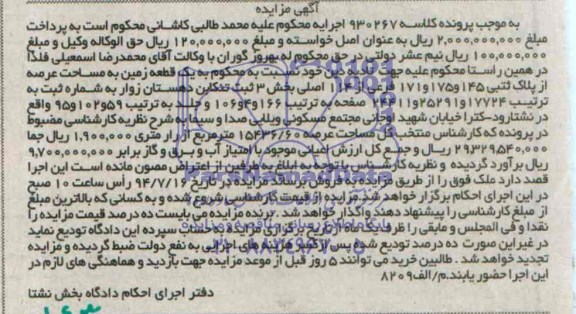 آگهی مزایده
به موجب پرونده کلاسه ۹۳۰۲۶۷ اجرایه محکوم علیه محمد طالبی کاشانی محکوم است به پرداخت
مبلغ ۲,۰۰۰,۰۰۰,۰۰۰ ریال به عنوان اصل خواسته و مبلغ ۱۲۰,۰۰۰,۰۰۰ ریال حق الوکاله وکیل و مبلغ
۱۰۰,۰۰۰,۰۰۰ ریال نیم عشر دولتی در حق محکوم له بهروز گوران با وکالت آقای محمدرضا اسمعیلی فلذا
در همین راستا محکوم علیه جهت تادیه دین خود نسبت به محکوم به یک قطعه زمین به مساحت عرصه
از پلاک ثبتی ۱۴۵و۱۷۵و۱۷۱ فرعی از ۱۱۴ اصلی بخش ۳ ثبت تنکابن دهستان زوار به شماره ثبت به
ترتیب ۱۷۷۲۴و۲۵۲۹۱و صفحه به ترتیب ۱۶۶و۴و۱۰۶ و جلد به ترتیب ۵۹و۱۰۲و۹۵ واقع
در نشتارود-کترا خیابان شهید اوجانی مجتمع مسکونی ویلایی صدا و سیما به شرح نظریه کارشناسی مضبوط
در پرونده که کارشناس منتخب کل مساحت عرصه ۱۵۴۳۶/۶۰ مترمربع از قرار متری ۱,۹۰۰,۰۰۰ ریال جمعا
۲۹۳۲۹۵۴۰,۰۰۰ ریال و جمع کل ارزش اعیانی موجود با امتیاز آب و برق و گاز برابر ۹,۷۰۰,۰۰۰,۰۰۰
ریال برآورد گردیده و نظریه کارشناس با توجه به ابلاغ به طرفین از اعتراض مصون مانده است این اجرا
قصد دارد ملک فوق را از طریق مزایده به فروش برساند مزایده در تاریخ ۹۴/۷/۱۶ راس ساعت ۱۰ صبح
در این اجرای احکام برگزار خواهد شد مزایده از قیمت کارشناسی شروع شده و به کسانی که بالاترین مبلغ
از مبلغ کارشناسی را پیشنهاد دهند واگذار خواهد شد. برنده مزایده می بایست ده درصد قیمت مزایده را
نقدا و فی المجلس و مابقی را ظرف یک ماه از تاریخ برگزاری مزایده به حساب سپرده این دادگاه تودیع نماید
در غیر این صورت ده درصد تودیع شده پس از کسر هزینه های اجرایی به نفع دولت ضبط گردیده و مزایده
تجدید خواهد شد. طالبین خرید می توانند ۵ روز قبل از موعد مزایده جهت بازدید و هماهنگی های لازم در
این اجرا حضور یابند.م/الف۸۲۰۹
دفتر اجرای احکام دادگاه بخش نشتا